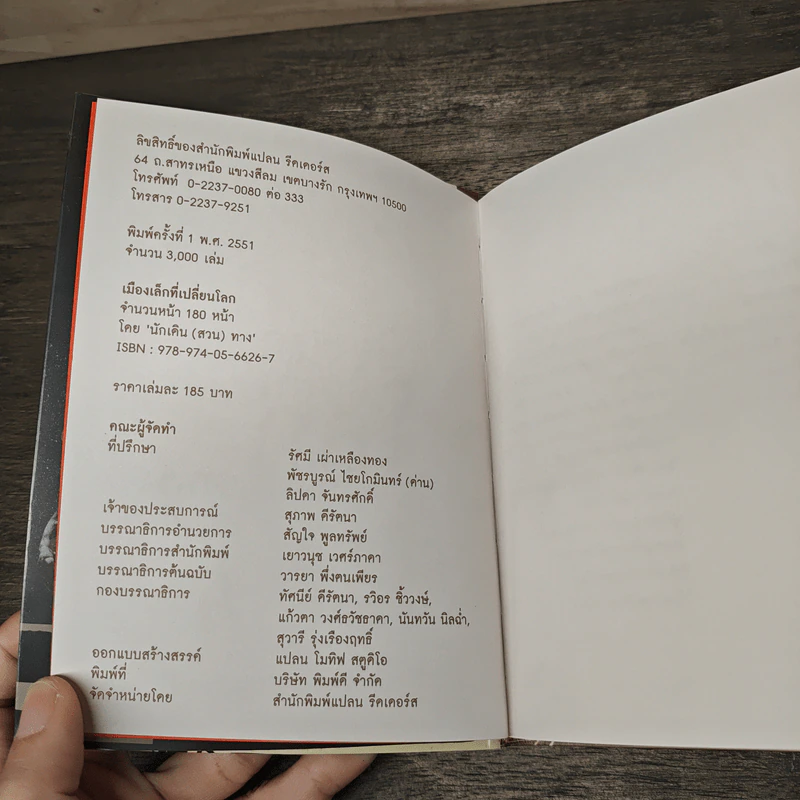 ลิขสิทธิ์ของสำนักพิมพ์แปลน รีดเดอร์ส
64 ถ.สาทรเหนือ แขวงสีลม เขตบางรัก กรุงเทพฯ 10500
โทรศัพท์ 0-2237-0080 ต่อ 333
โทรสาร 0-2237-9251
พิมพ์ครั้งที่ 1 พ.ศ. 2551
จำนวน 3,000 เล่ม
เมืองเล็กที่เปลี่ยนโลก
จำนวนหน้า 180 หน้า
โดย 'นักเดิน (สวน) ทาง'
ISBN : 978-974-05-6626-7
ราคาเล่มละ 185 บาท
คณะผู้จัดทำ
ที่ปรึกษา รัศมี เผ่าเหลืองทอง
พัชรบูรณ์ ไชยโกมินทร์ (ด่าน)
ลิปดา จันทรศักดิ์
เจ้าของประสบการณ์ สุภาพ ดีรัตนา
บรรณาธิการอำนวยการ สัญใจ พูลทรัพย์
บรรณาธิการสำนักพิมพ์ เยาวนุช เวศร์ภาดา
บรรณาธิการต้นฉบับ วารยา พึ่งตนเพียร
กองบรรณาธิการ ทัศนีย์ ดีรัตนา, รวิอร ชิ้ววงษ์,
แก้วตา วงศ์ธวัชธาดา, นันทวัน นิลฉ่ำ,
สุวารี รุ่งเรืองฤทธิ์
ออกแบบสร้างสรรค์ แปลน โมทิฟ สตูดิโอ
พิมพ์ที่ บริษัท พิมพ์ดี จำกัด
จัดจำหน่ายโดย สำนักพิมพ์แปลน รีดเดอร์ส